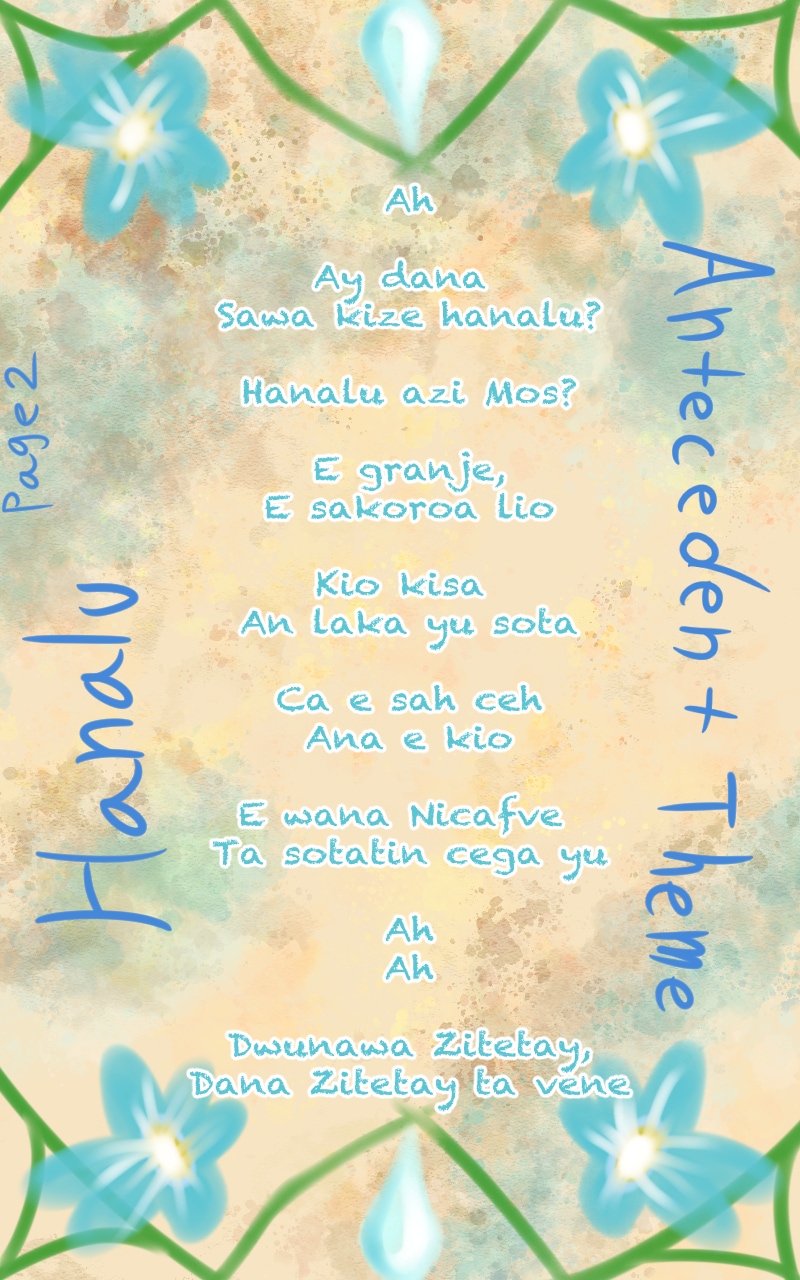 Page 2
Hanalu
Antecedent Theme
Ah
Ay dana
Sawa kize hanalu?
Hanalu azi Mos?
E granje,
E sakoroa lio
Kio kisa
An laka yu sota
Ca e sah ceh
Ana e kio
E wana Nicafve
Ta sotatin cega yu
Ah
Ah
Dwunawa Zitetay,
Dana Zitetay ta vene